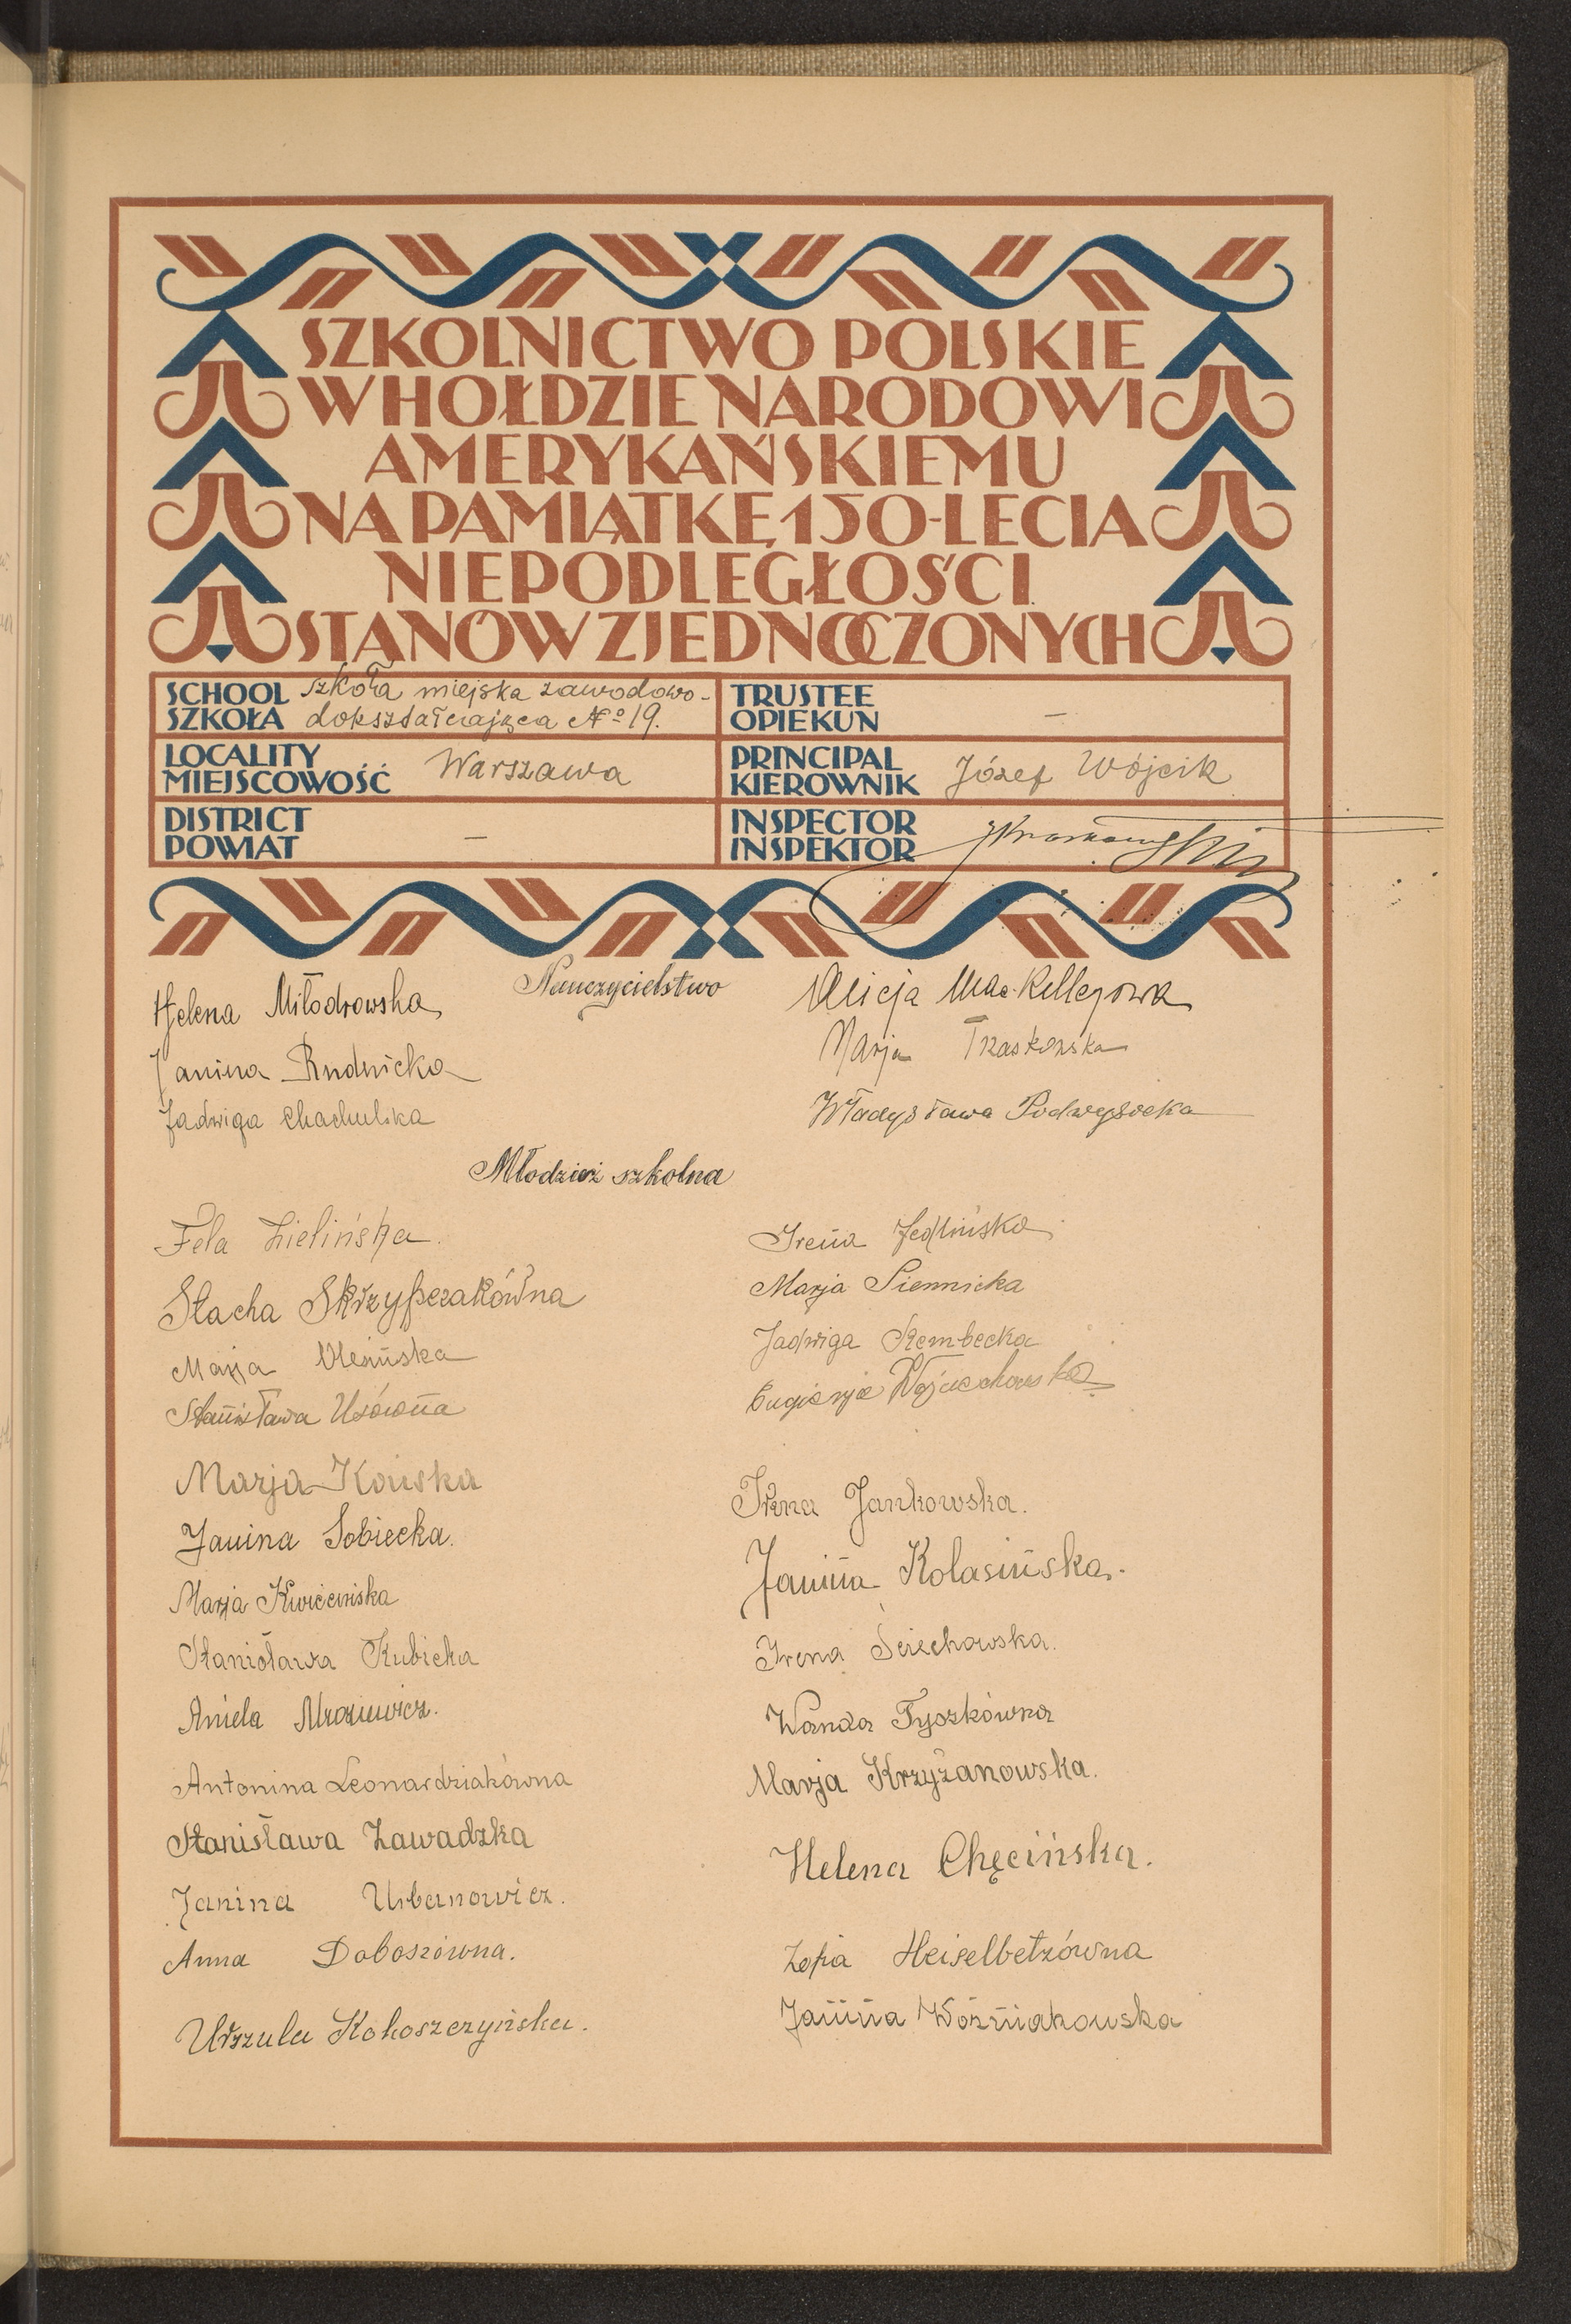 SZKOLNICTWO POLSKIE
W HOŁDZIE NARODOWI
AMERYKAŃSKIEMU
NA PAMIĄTKĘ 150-LECIA
NIEPODLEGŁOŚCI
STANÓW ZJEDNOCZONYCH
SCHOOL
SZKOŁA
szkoła miejska zawodowo-
dokształcająca № 19.
TRUSTEE
OPIEKUN
—
LOCALITY
MIEJSCOWOŚĆ
Warszawa
PRINCIPAL
KIEROWNIK
Józef Wójcik
DISTRICT
POWIAT
—
INSPECTOR
INSPEKTOR
Nauczycielstwo
Helena Miłodrowska
Janina Rudnicka
Jadwiga Chachulska
Alicja Mac-Kellegowa
Marja Trzaskowska
Władysława Podwysocka
Młodzież szkolna
Fela Zielińska.
Stacha Skrzypczakówna
Marja Olesińska
Stanisława Usówna
Marja Kańska
Janina Sobiecka.
Marja Kwiecińska
Stanisława Kubicka
Aniela Mroziewicz.
Antonina Leonardziakówna
Stanisława Zawadzka
Janina Urbanowicz.
Anna Doboszówna.
Urszula Kokoszczyńska.
Irena Jedlińska
Marja Siennicka
Jadwiga Rembecka
Eugienja Wojciechowska
Irena Jankowska.
Janina Kolasińska.
Irena Sciechowska.
Wanda Tyszkówna
Marja Krzyżanowska.
Helena Chęcińska.
Zofia Heiselbetzówna
Janina Woźniakowska